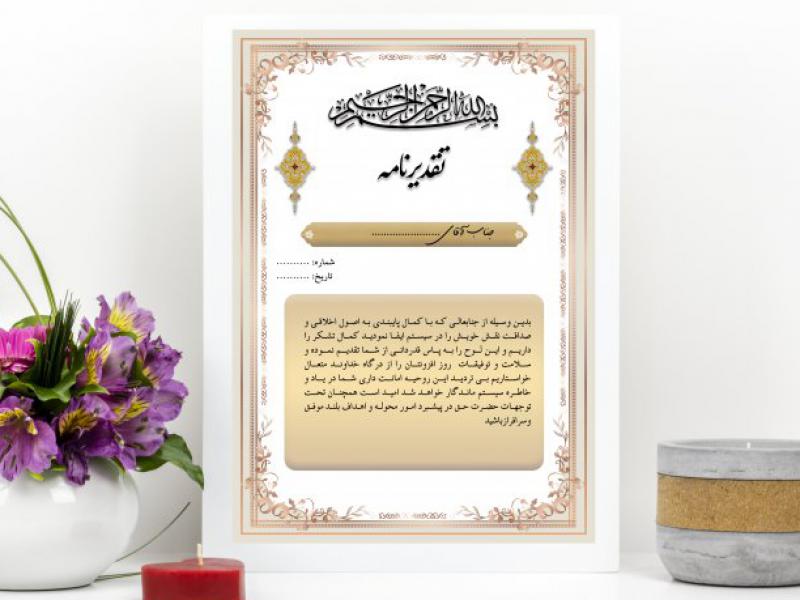 بسم الله الرحمن الرحیم
تقدیرنامه
جناب آقای........................
شماره: ..........
تاریخ: ..........
بدین وسیله از جنابعالی که با کمال پایبندی به اصول اخلاقی و
صداقت نقش خویش را در سیستم ایفا نمودید کمال تشکر را
داریم و این لوح را به پاس قدردانی از شما تقدیم نموده و
سلامت و توفیقات روز افزونتان را از درگاه خداوند متعال
خواستاریم بی تردید این روحیه امانت داری شما در یاد و
خاطره سیستم ماندگار خواهد شد امید است همچنان تحت
توجهات حضرت حق در پیشبرد امور محوله و اهداف بلند موفق
وسرافرازباشید